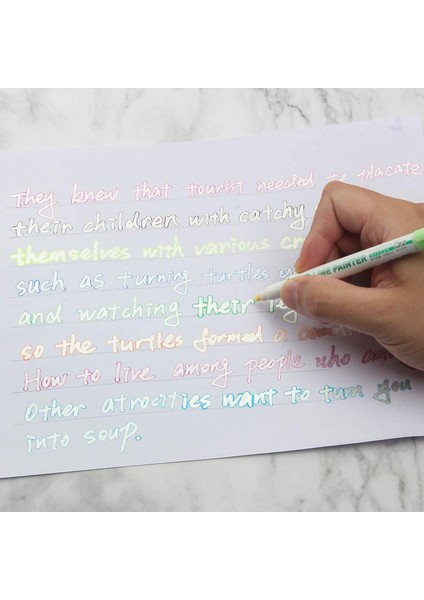 They knew that tourist needed to placate
their children with catchy
themselves with various
such as turning turtles
and watching their
so the turtles formed a
How to live among people who
Other atrocities want to turn you
into soup.
PAINTER